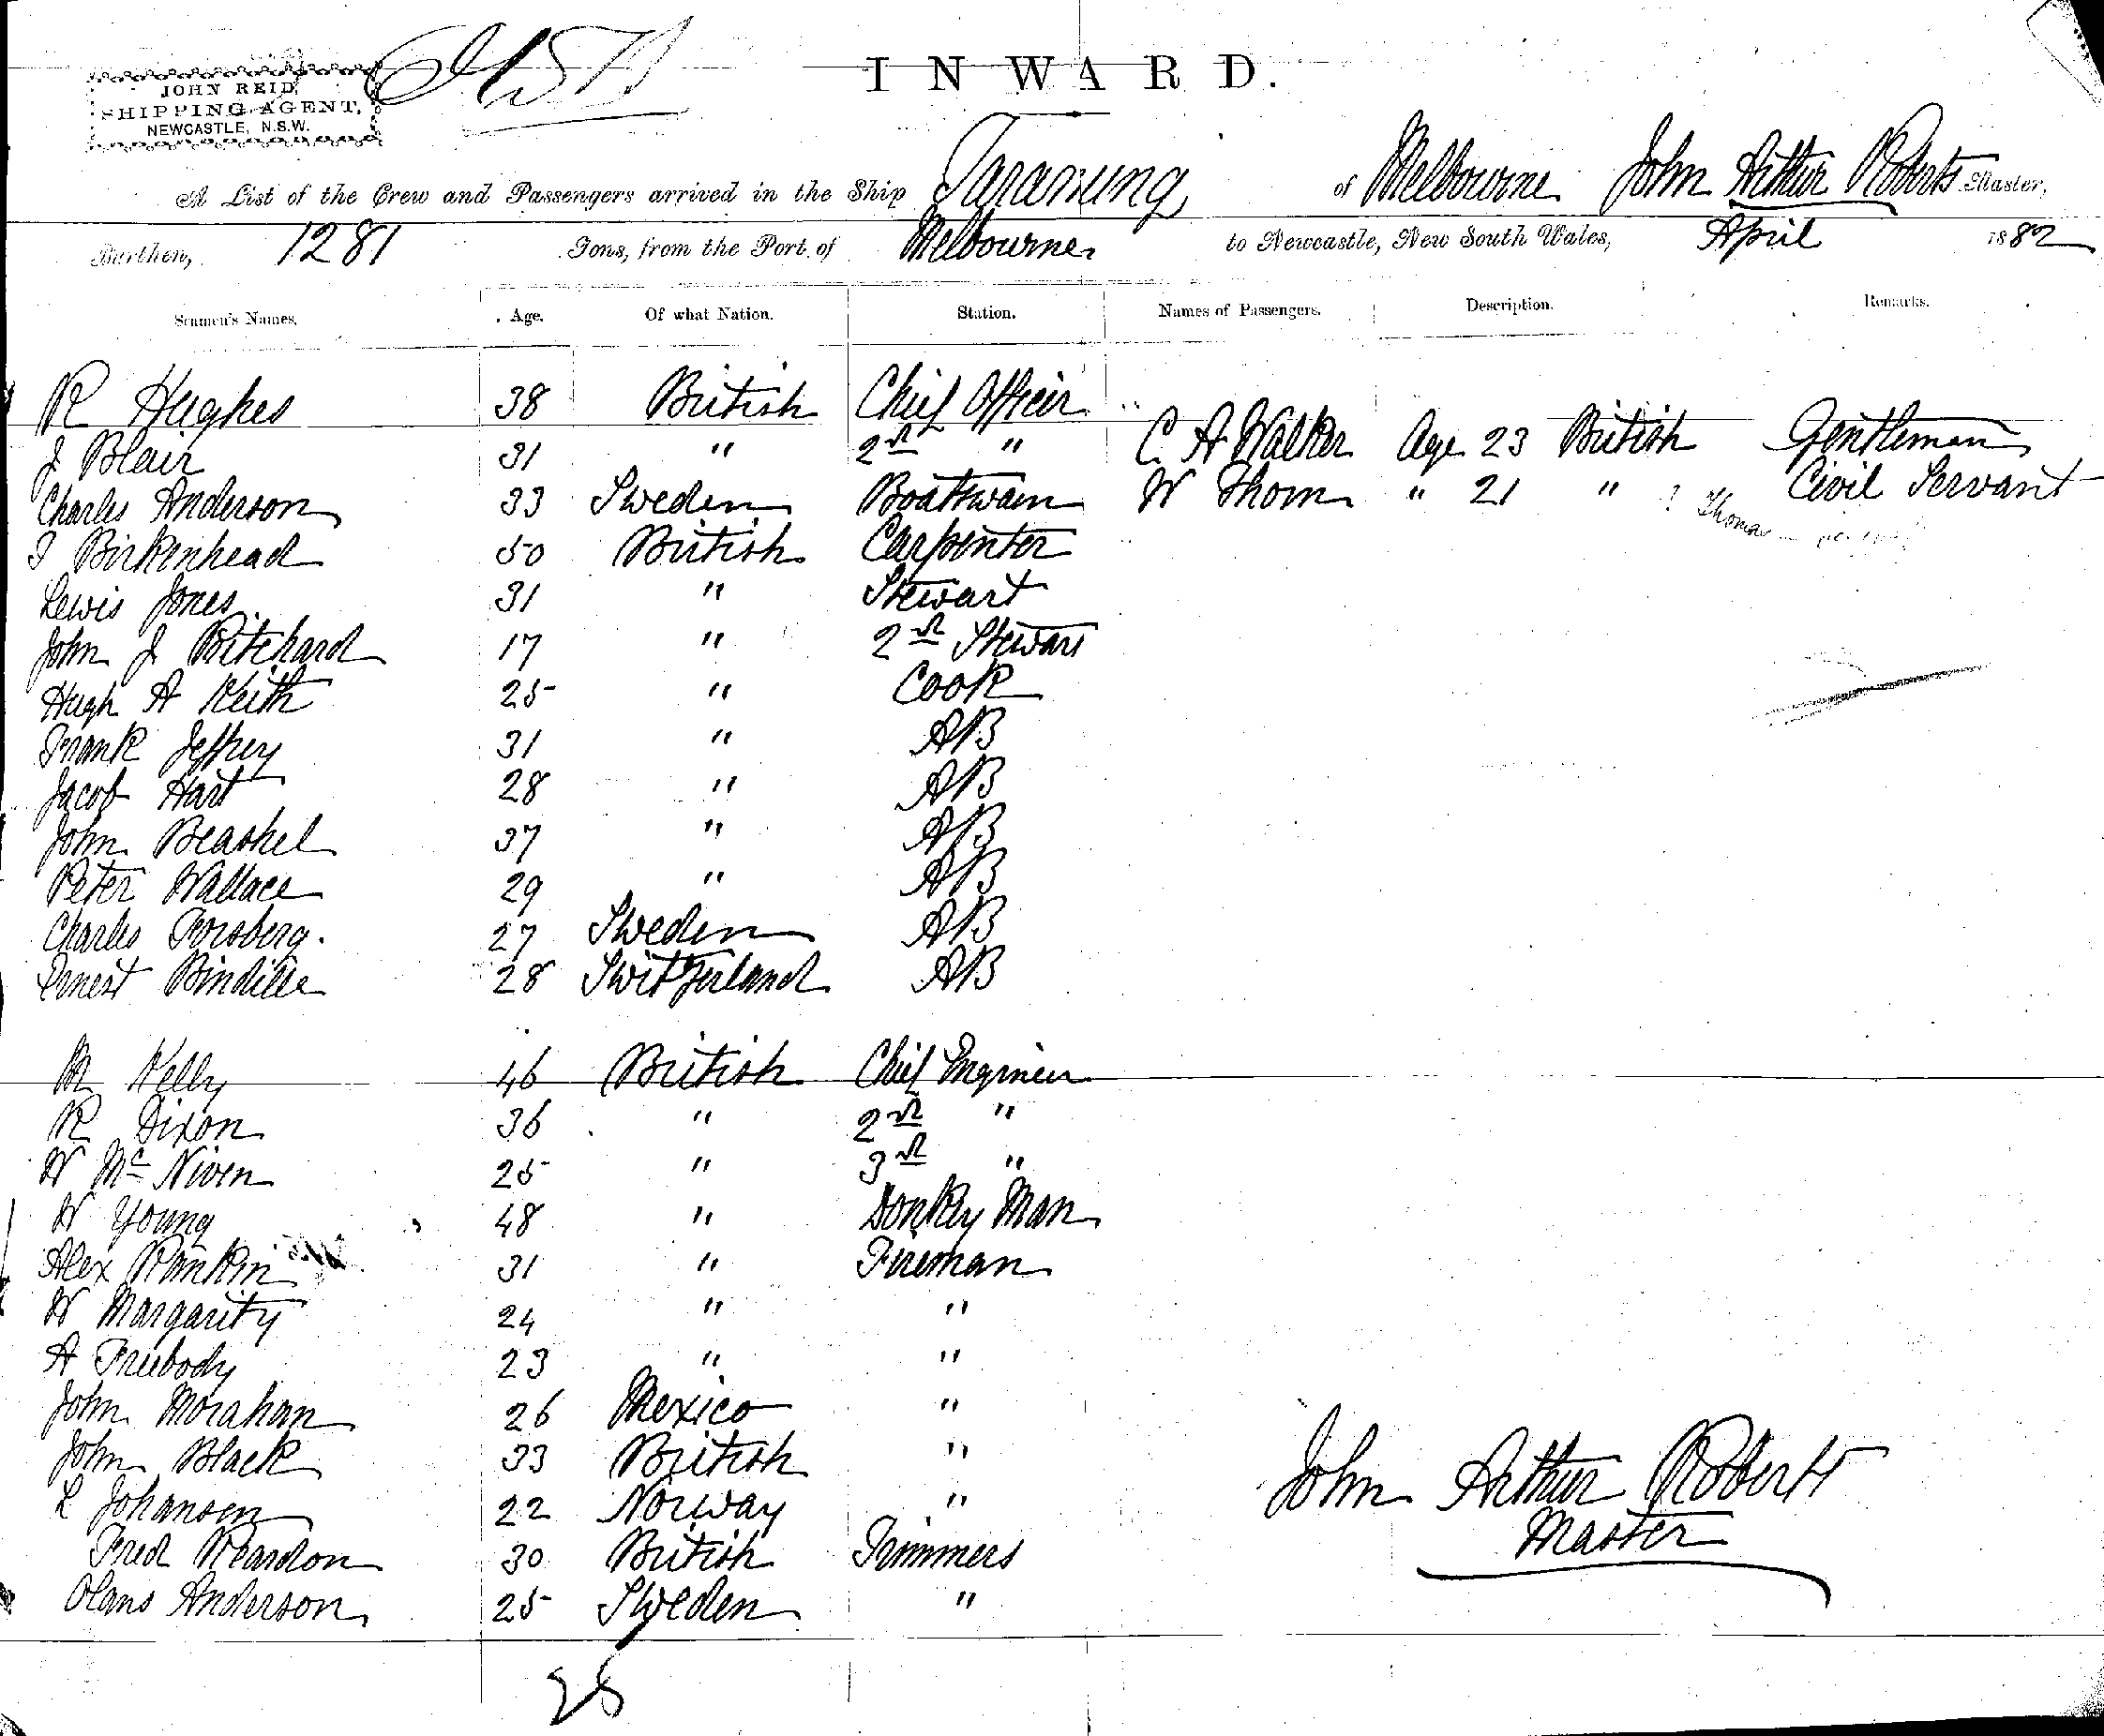 JOHN REID,
SHIPPING AGENT,
NEWCASTLE, N.S.W.
INWARD.
A List of the Crew and Passengers arrived in the Ship Taranung of Melbourne John Arthur Roberts Master,
Burthen, 1281 Tons, from the Port of Melbourne to Newcastle, New South Wales, April 1882
Seamen's Names. Age. Of what Nation. Station. Names of Passengers. Description. Remarks.
R Hughes 38 British Chief Officer
J Blair 31 " 2nd " C. A Walker Age 23 British Gentleman
Charles Anderson 33 Sweden Boatswain W Thom " 21 " Civil Servant
? Thomas
J Birkenhead 50 British Carpenter
Lewis Jones 31 " Stewart
John J Pritchard 17 " 2nd Stewart
Hugh A Keith 25 " Cook
Frank Jeffrey 31 " AB
Jacob Hart 28 " AB
John Beashel 37 " AB
Peter Wallace 29 " AB
Charles Forsberg. 27 Sweden AB
Ernest 28 Switzerland AB
M Kelly 46 British Chief Engineer
R Dixon 36 " 2nd "
W McNiven 25 " 3rd "
W Young 48 " Donkey Man
Alex Rankin 31 " Fireman
W Margarity 24 " "
A Freebody 23 " "
John Morahan 26 Mexico "
John Black 33 British "
L Johansen 22 Norway "
Fred Reardon 30 British Trimmers
Olans Anderson 25 Sweden "
John Arthur Roberts
Master